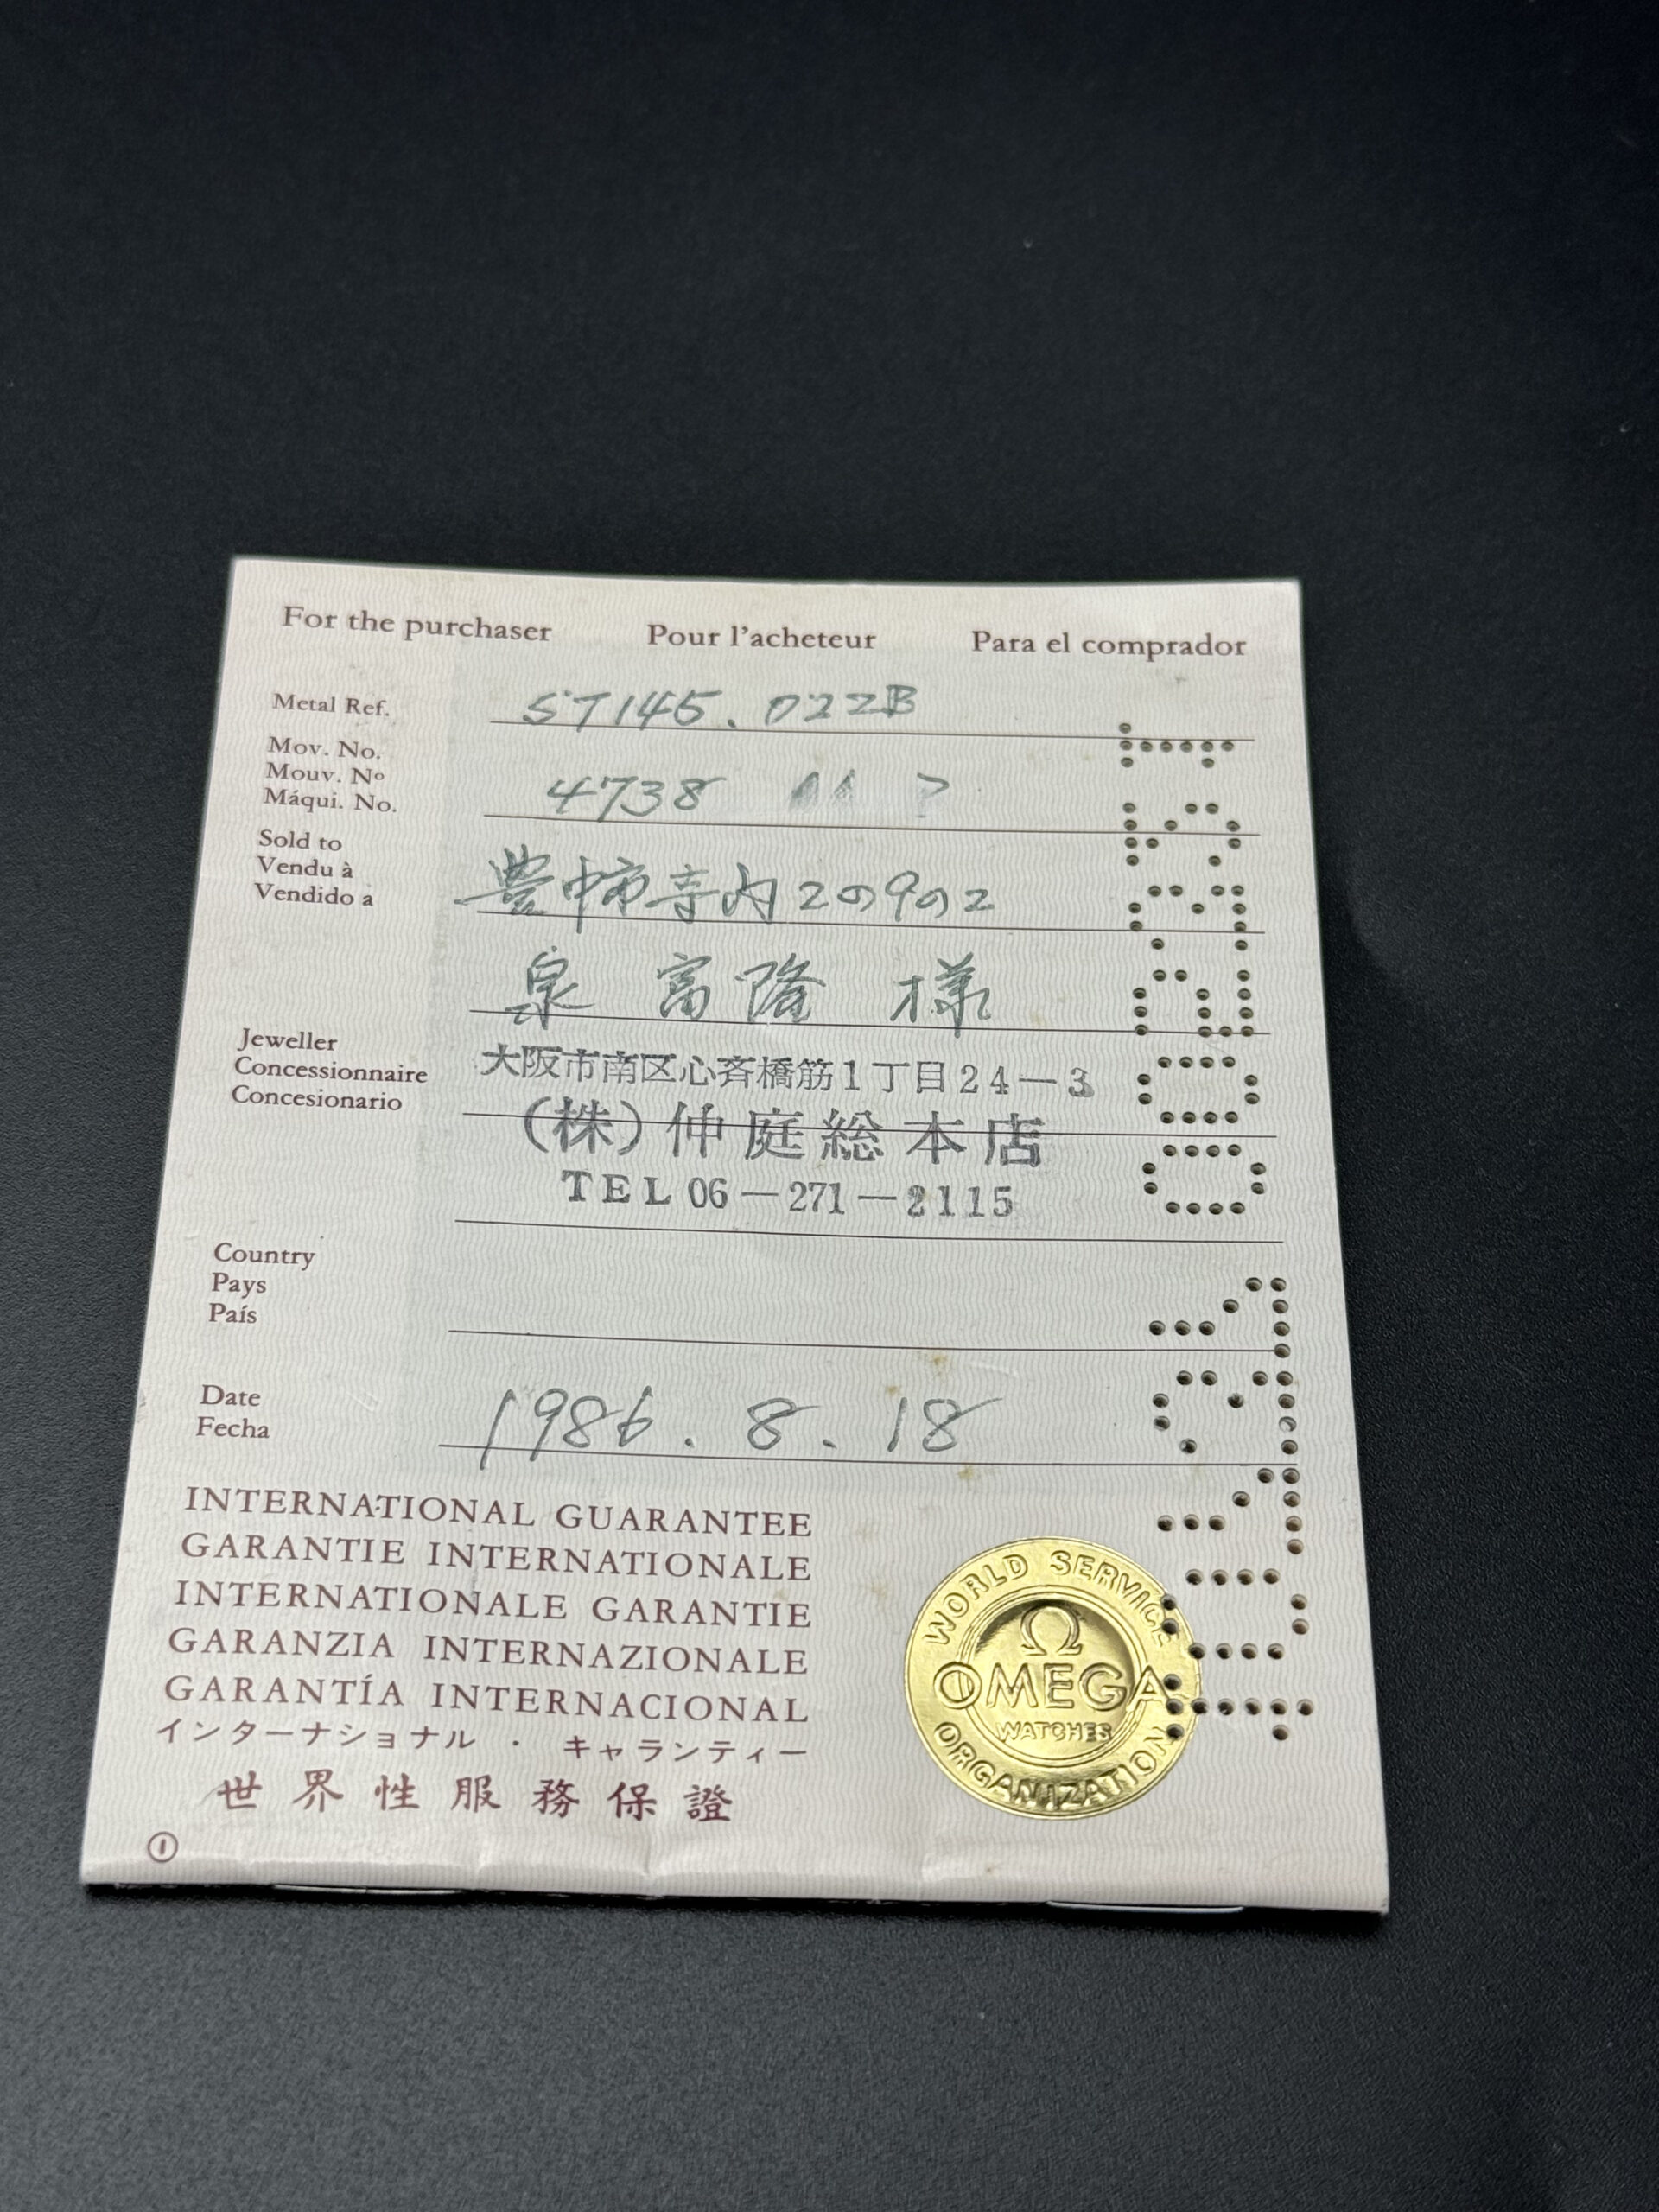 For the purchaser Pour l'acheteur Para el comprador
Metal Ref. ST145.022B
Mov. No.
Mouv. Nº 4738
Máqui. No.
Sold to
Vendu à 豊中市寺内2の9の2
Vendido a
泉 富隆 様
Jeweller
Concessionnaire 大阪市南区心斉橋筋1丁目24-3
Concesionario (株)仲庭総本店
TEL 06-271-2115
Country
Pays
País
Date 1986.8.18
Fecha
INTERNATIONAL GUARANTEE
GARANTIE INTERNATIONALE
INTERNATIONALE GARANTIE
GARANZIA INTERNAZIONALE
GARANTÍA INTERNACIONAL
インターナショナル・キャランティー
世界性服務保證
WORLD SERVICE
Ω
OMEGA
WATCHES
ORGANIZATION